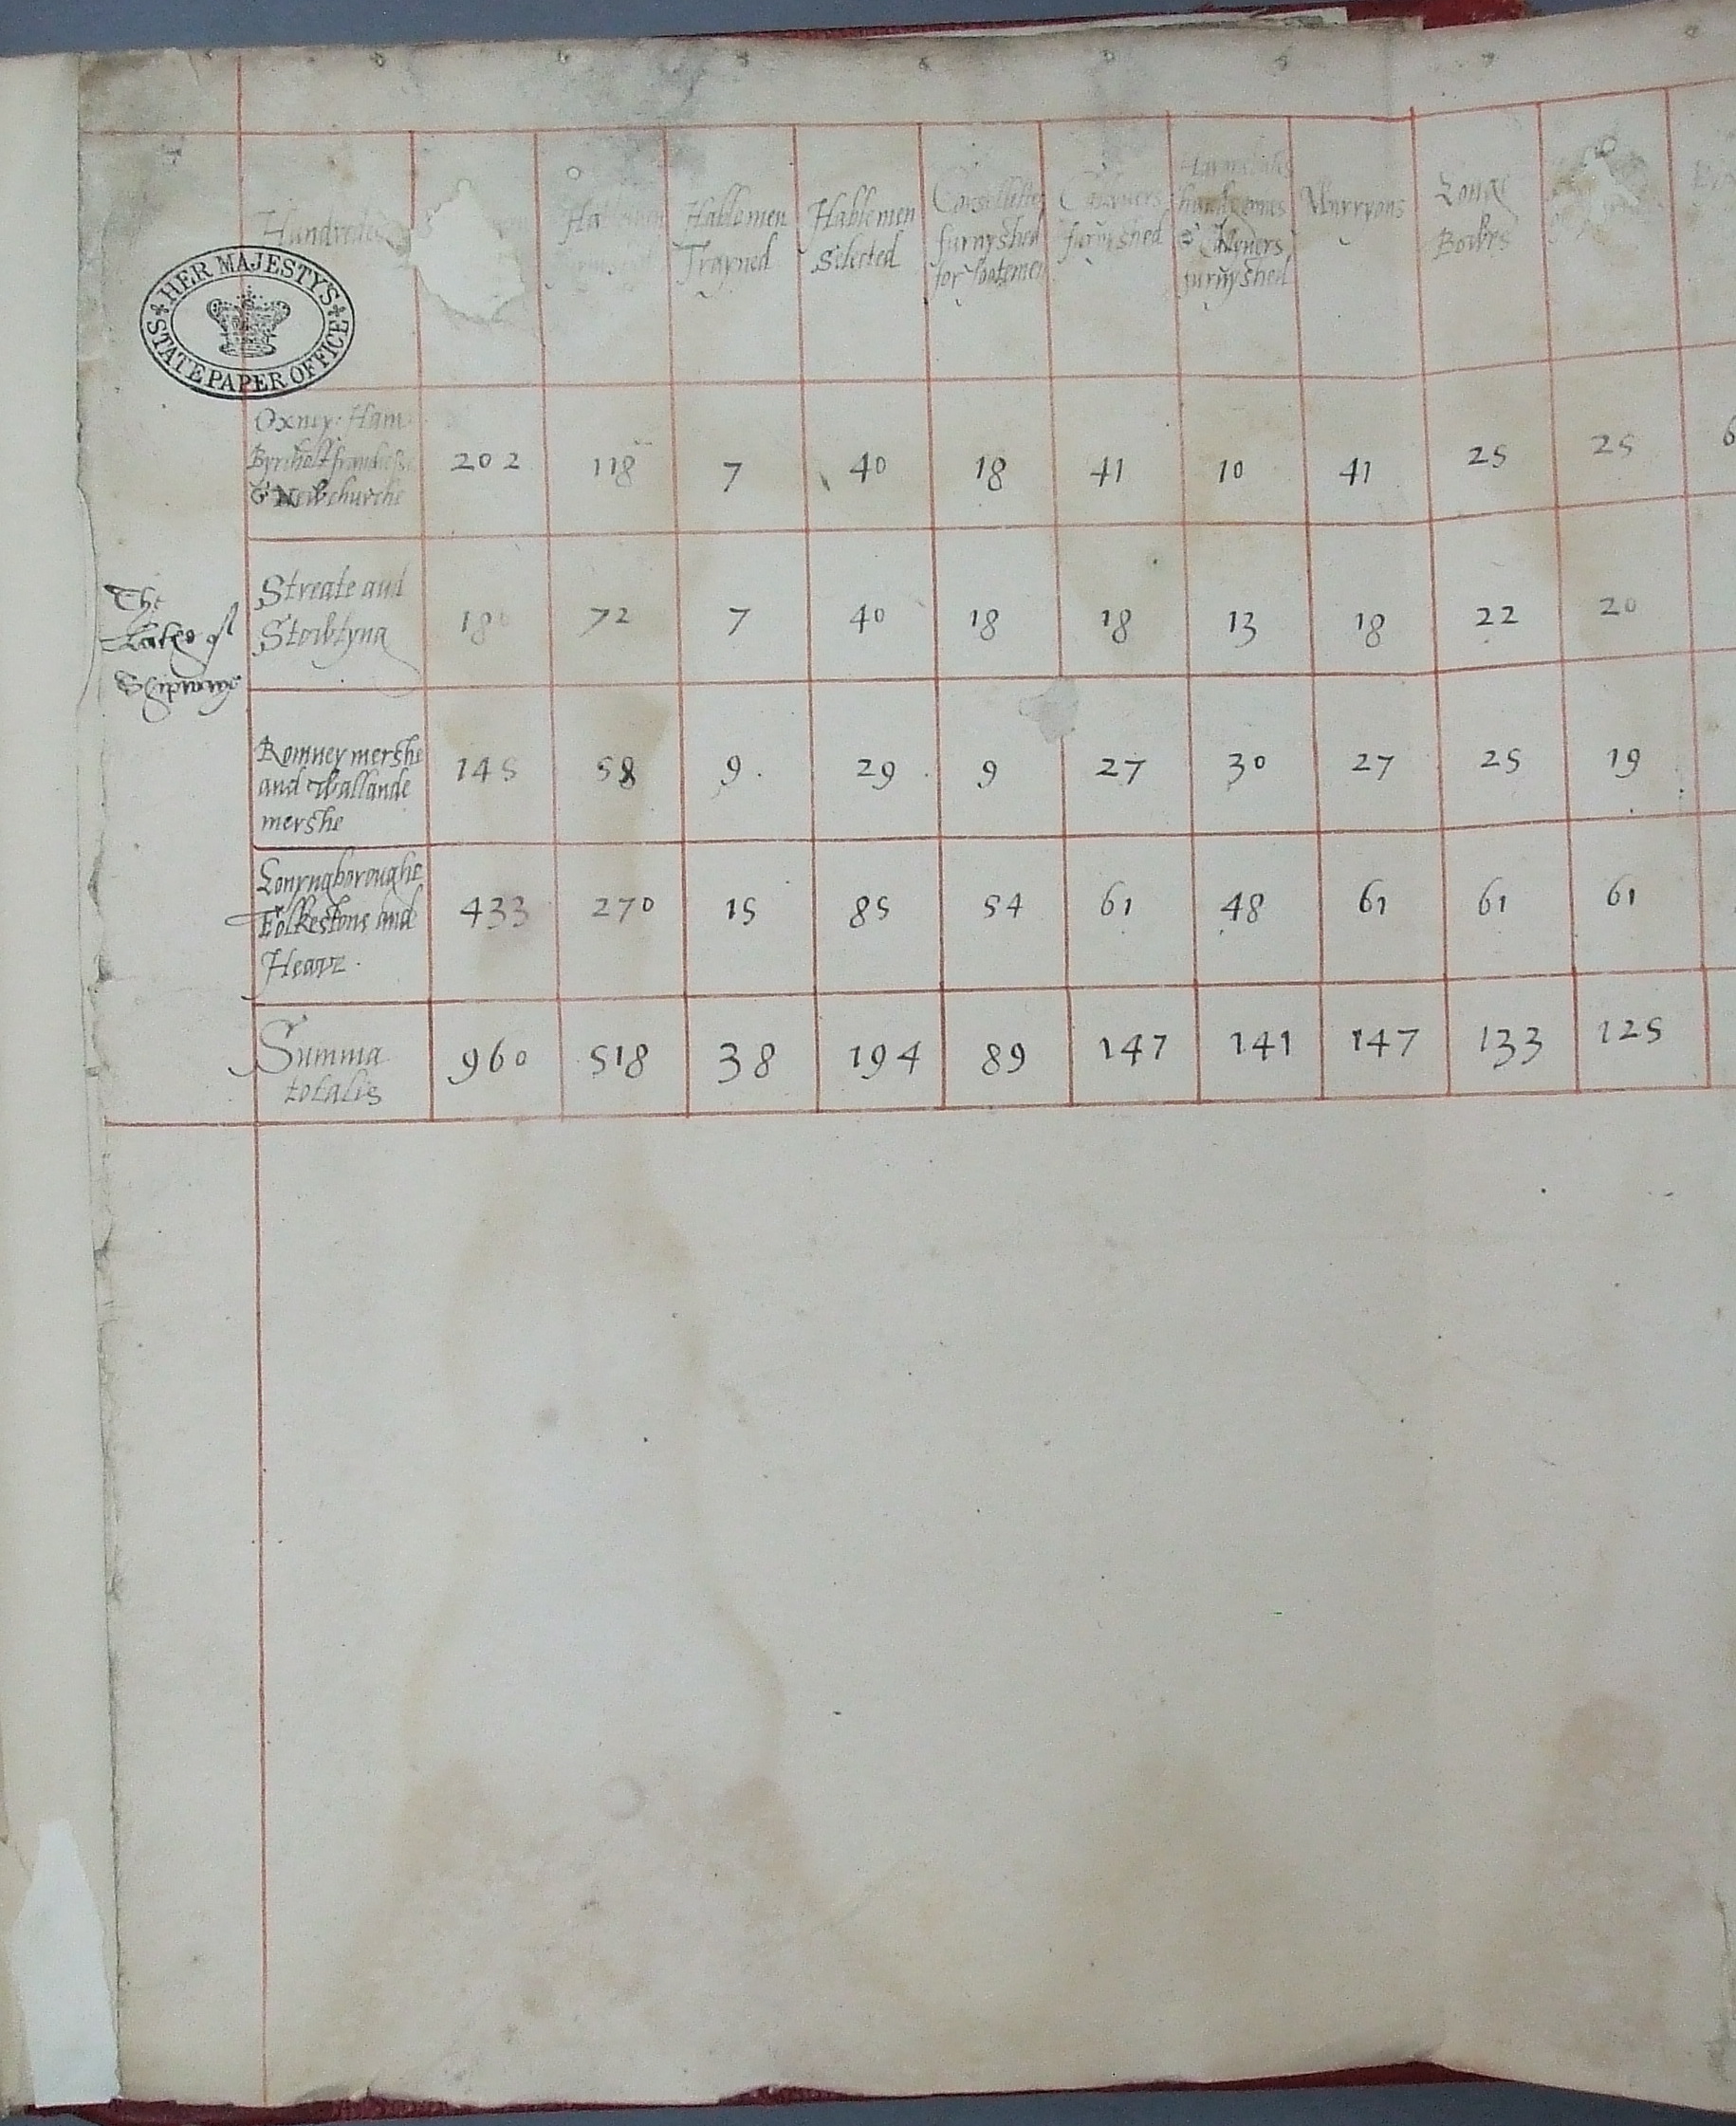 HER MAJESTY'S STATE PAPER OFFICE
Hundredes
Hablemen Trayned
Hablemen Selected
furnyshed for footemen
furnyshed
furnyshed
Murryons
Longe Bowes
The Lathe of Shipwaye
Oxney Ham Byrcholt & Newchurche 202 118 7 40 18 41 10 41 25 25 6
Streate and Stowtyng 18 72 7 40 18 18 13 18 22 20
Romney mershe and Wallande mershe 145 58 9. 29. 9 27 30 27 25 19
Lonyngboroughe Folkestone and Heane 433 270 15 85 54 61 48 61 61 61
Summa totalis 960 518 38 194 89 147 141 147 133 125